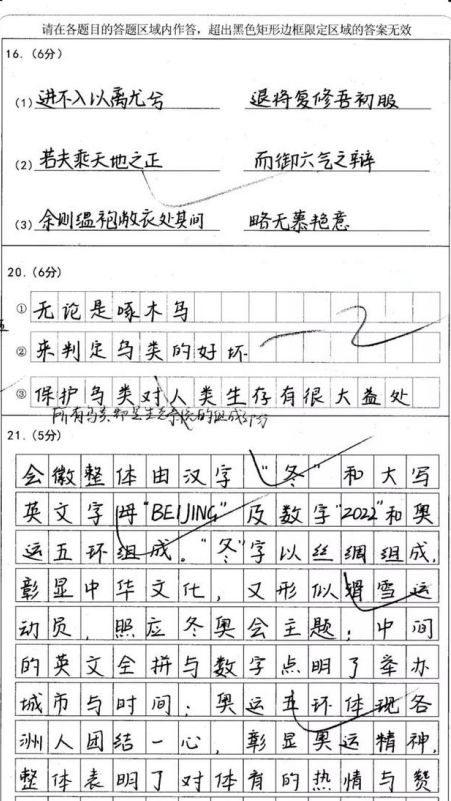 请在各题目的答题区域内作答，超出黑色矩形边框限定区域的答案无效
16.（6分）
（1）进不入以离尤兮 退将复修吾初服
（2）若夫乘天地之正 而御六气之辩
（3）余则缊袍敝衣处其间 略无慕艳意
20.（6分）
① 无论是啄木鸟
② 来判定鸟类的好坏
③ 保护鸟类对人类生存有很大益处
所有鸟类都是生态系统的组成部分
21.（5分）
会徽整体由汉字"冬"和大写
英文字母"BEIJING"及数字"2022"和奥
运五环组成。"冬"字以丝绸组成，
彰显中华文化，又形似滑雪运
动员，照应冬奥会主题；中间
的英文全拼与数字点明了举办
城市与时间；奥运五环体现各
洲人团结一心，彰显奥运精神，
整体表明了对体育的热情与赞